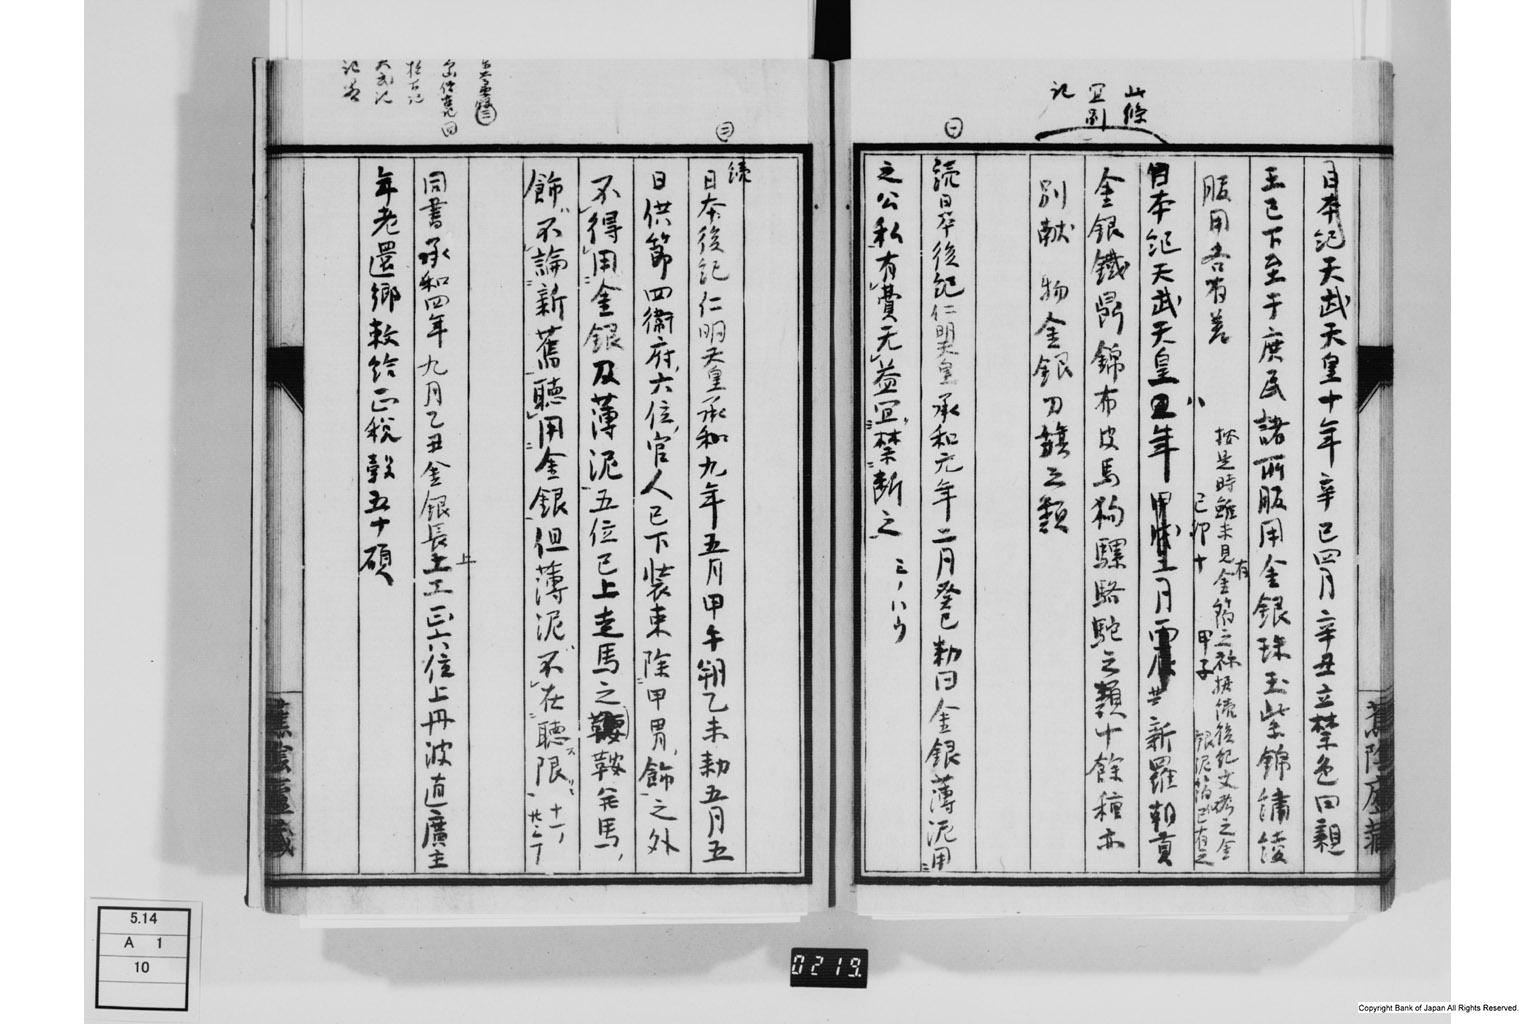 此條
宜別
記
日本紀天武天皇十年辛巳四月辛丑立禁色曰親
王已下至于庶民諸所服用金銀珠玉紫錦繡綾
服用各有差
按是時雖未見金箔之
有
銀泥箔已有之
日本紀天武天皇
八
年
己卯十
月
甲子
新羅朝貢
金銀鐵鼎錦布皮馬狗騾駱駝之類十餘種亦
別献物金銀刀旗之類
㊀
続日本後紀仁明天皇承和元年二月癸巳勅曰金銀薄泥用
之公私有費无益宜禁断之
三ノ八ウ
㊂
続
日本後紀仁明天皇承和九年五月甲午朔乙未勅五月五
日供節四衛府六位官人已下装束除甲冑飾之外
不得用金銀及薄泥五位已上走馬之鞍并馬
飾不論新舊聴用金銀但薄泥不在聴限
同書承和四年九月乙丑金銀長上工正六位上丹波直廣主
上
年老還郷敕給正税穀五十碩
舊陰廬藏
5.14
A 1
10
0219.
Copyright Bank of Japan All Rights Reserved.